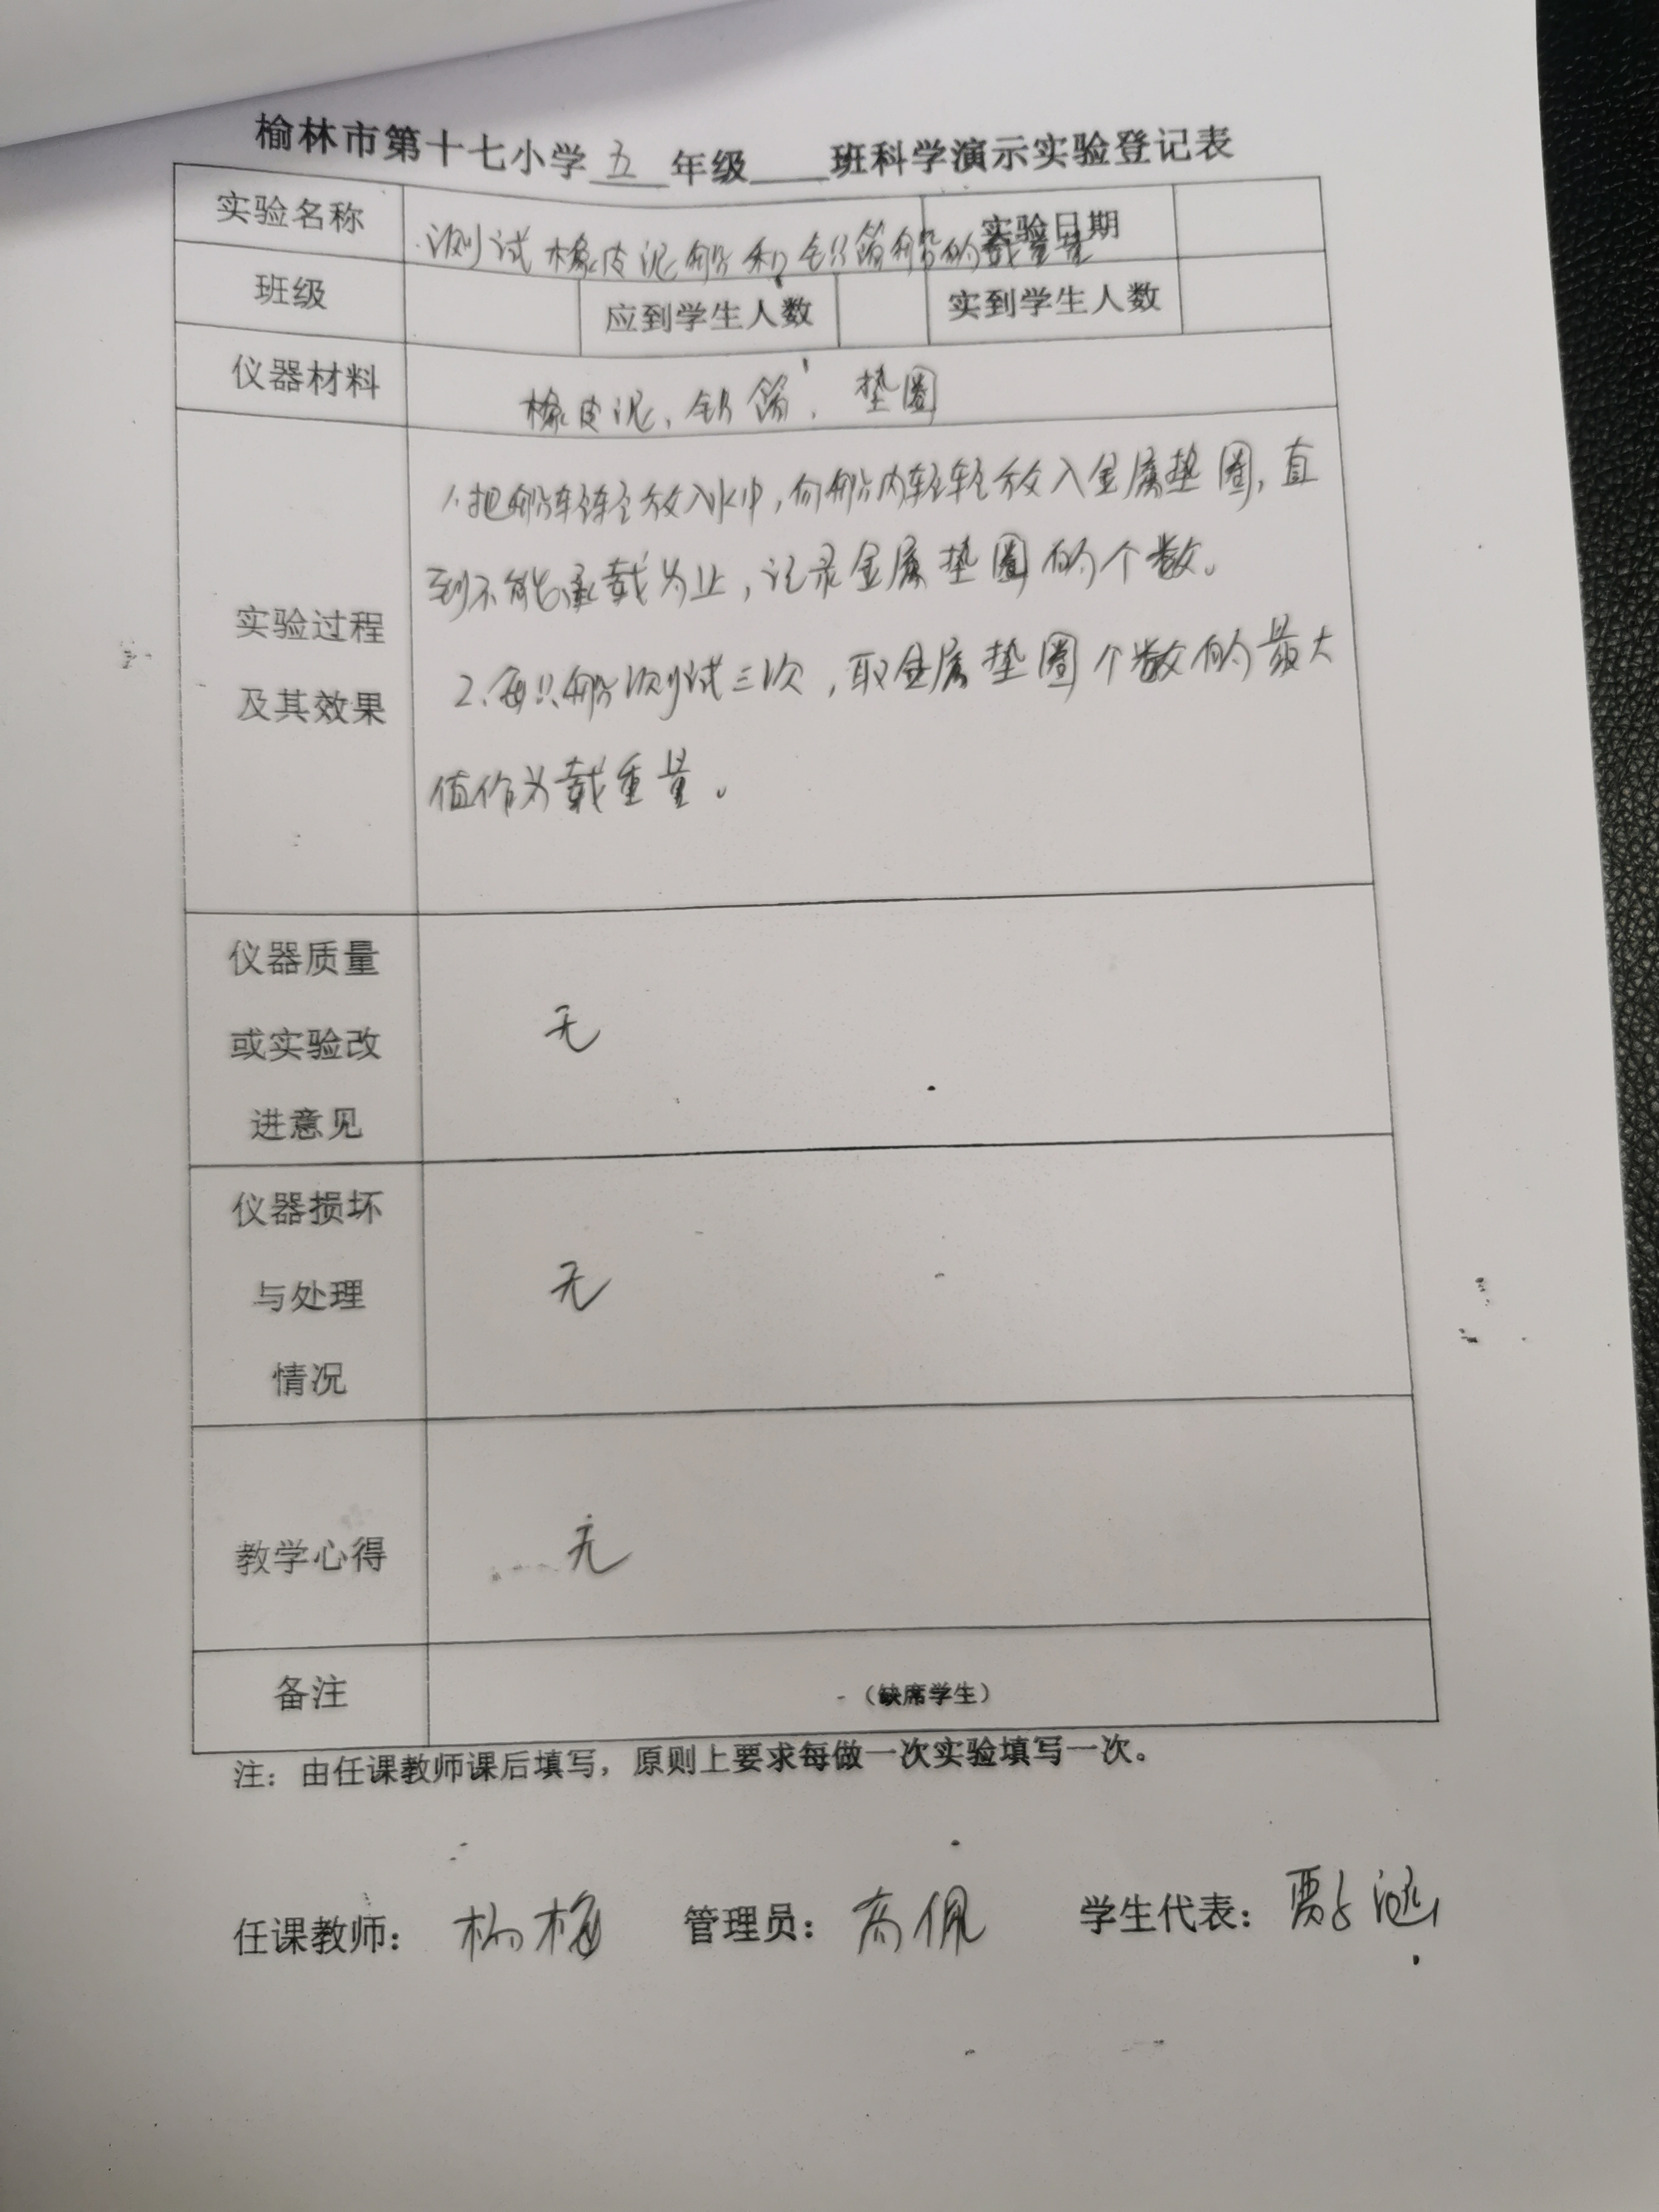 榆林市第十七小学 五 年级____班科学演示实验登记表
实验名称 测试橡皮泥船和铝箔船的载重量 实验日期
班级 应到学生人数 实到学生人数
仪器材料 橡皮泥、铝箔、垫圈
1.把船轻轻放入水中,向船内轻轻放入金属垫圈,直
到不能承载为止,记录金属垫圈的个数。
实验过程
及其效果
2.每只船测试三次,取金属垫圈个数的最大
值作为载重量。
仪器质量
或实验改
进意见
无
仪器损坏
与处理
情况
无
教学心得 无
备注 (缺席学生)
注:由任课教师课后填写,原则上要求每做一次实验填写一次。
任课教师: 杨梅 管理员: 高佩 学生代表: